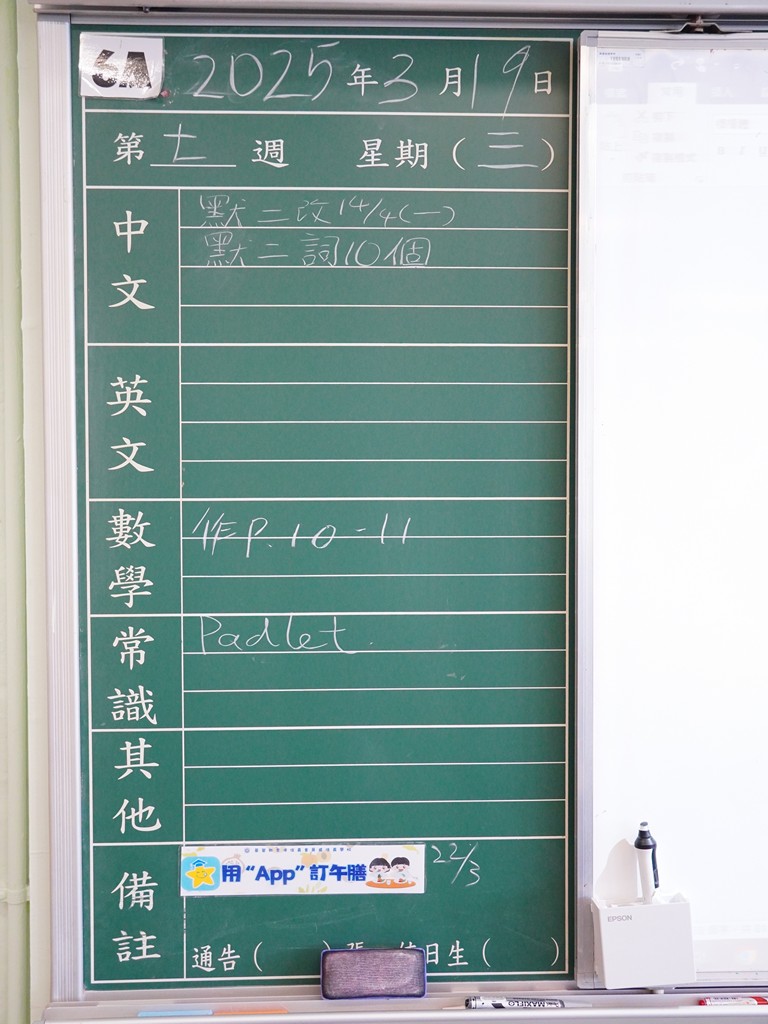 6A 2025年3月19日
第 土 週 星期(三)
中文
默二改 14/4(一)
默二詞10個
英文
數學
作P.10-11
常識
Padlet.
其他
備註
用“App”訂午膳
22/3
通告( ) 日生( )
EPSON